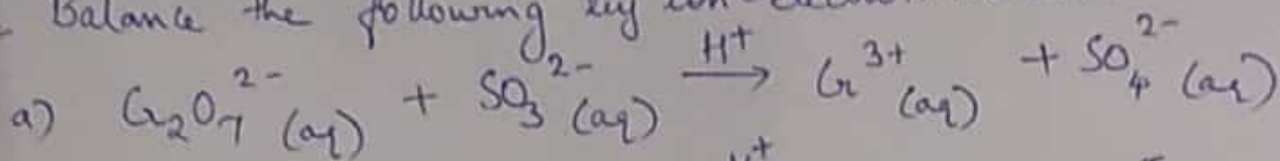 Balance the following by ion-
a) Cr₂O₇²⁻ (aq) + SO₃²⁻ (aq) —H⁺→ Cr³⁺ (aq) + SO₄²⁻ (aq)
H⁺